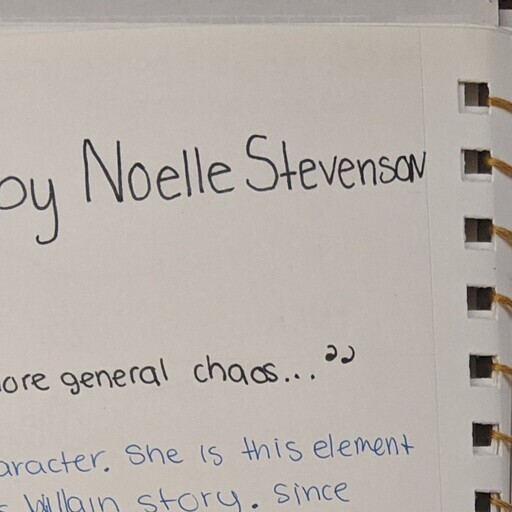 by Noelle Stevenson
ore general chaos..."
aracter. She is this element
villain story. Since